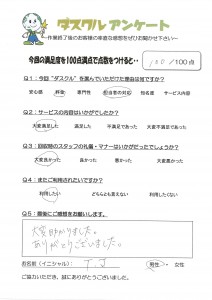 ダスクル アンケート
~作業終了後のお客様の率直な感想をぜひお聞かせ下さい~
今回の満足度を100点満点で点数をつけると… 100 /100点
Q1:今回"ダスクル"を選んでいただけた理由は何ですか?
安心感 料金 専門性 担当者の対応 知名度 サービス内容
Q2:サービスの内容はいかがでしたか?
大変満足した 満足した 不満足であった 大変不満足であった
Q3:訪問時のスタッフの礼儀・マナーはいかがだったでしょうか?
大変良かった 良かった 悪かった 大変悪かった
Q4:またご利用されたいですか?
利用したい どちらとも言えない 利用したくない
Q5:最後にご感想をお願いします。
大変助かりました。
ありがとうございました。
お名前(イニシャル) 男性・女性
ご協力いただき、誠にありがとうございました。